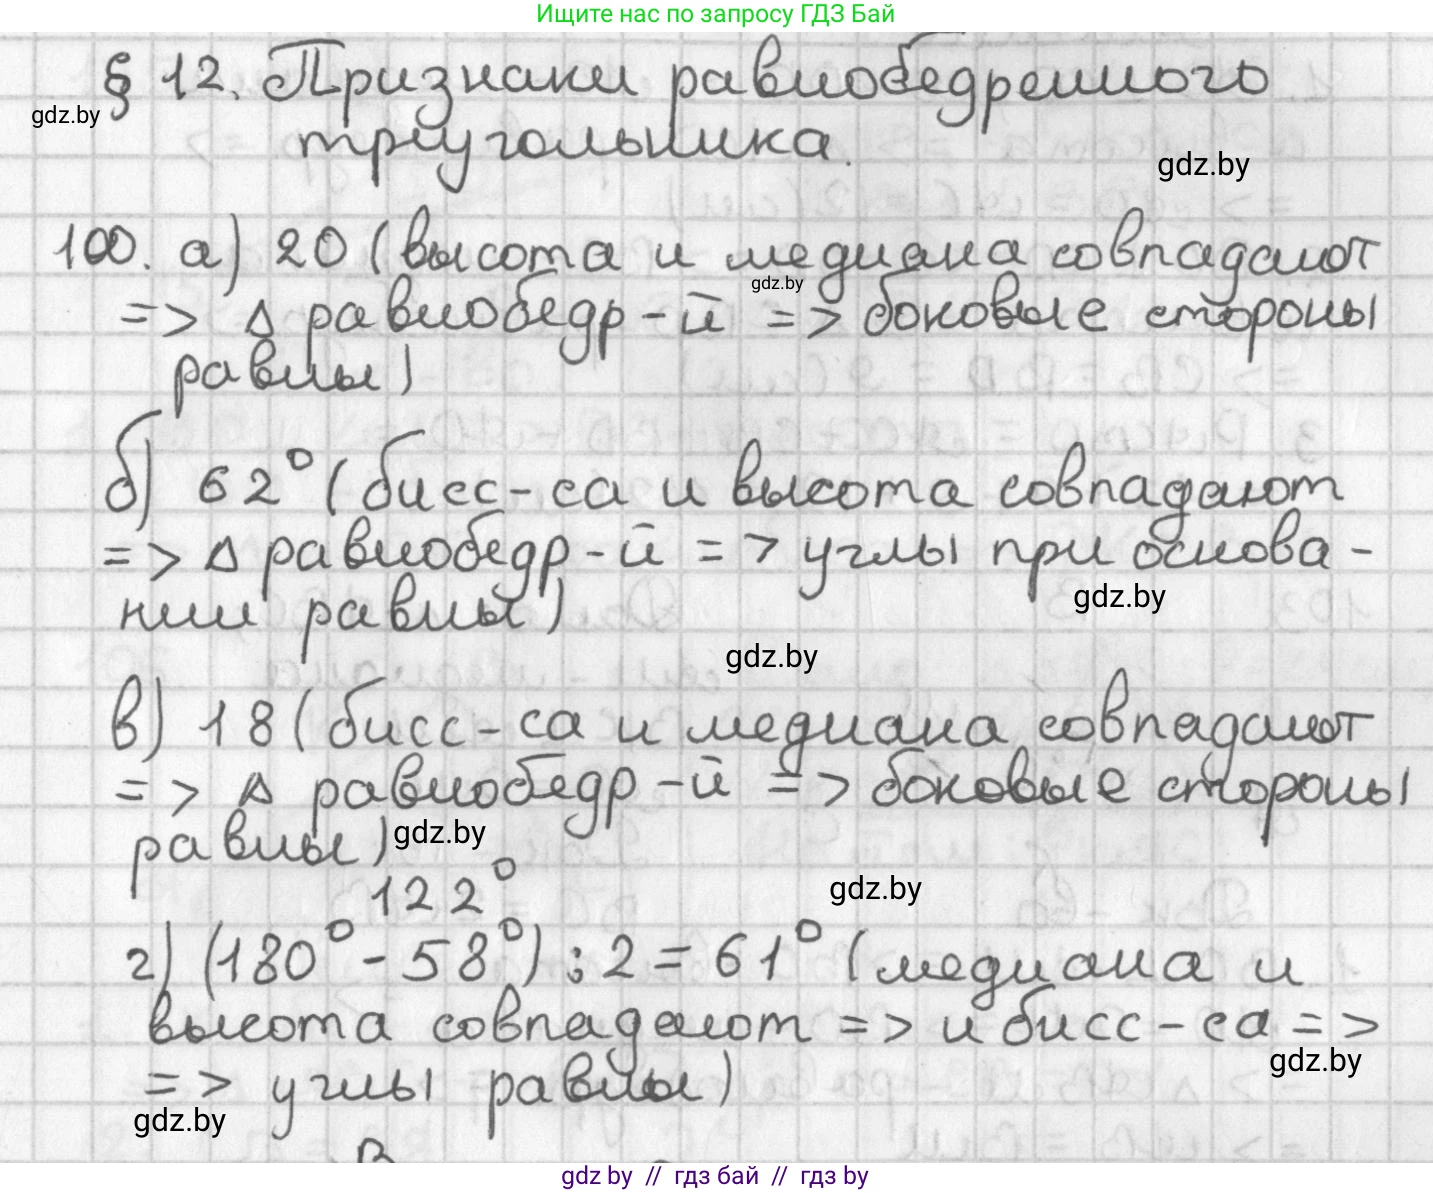 Ищите нас по запросу ГДЗ Бай
§ 12. Признаки равнобедренного
gdz.by
треугольника.
gdz.by
100. а) 20 (высота и медиана совпадают
gdz.by
=> Δ равнобедр-й => боковые стороны
равны)
б) 62° (бисс-са и высота совпадают
=> Δ равнобедр-й => углы при основа-
нии равны)
gdz.by
gdz.by
в) 18 (бисс-са и медиана совпадают
=> Δ равнобедр-й => боковые стороны
равны)
gdz.by
122°
gdz.by
г) (180° - 58°) : 2 = 61° (медиана и
высота совпадают => и бисс-са =>
gdz.by
=> углы равны)
gdz.by
В
gdz by // гдз бай // гдз by